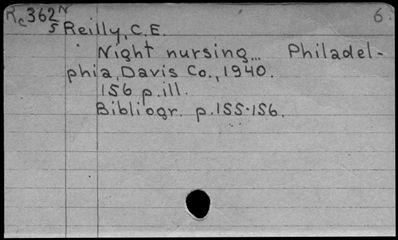 Rc362N 6.
5 Reilly, C.E.
Night nursing... Philadel-
phia, Davis Co., 1940.
156 p. ill.
Bibliogr. p.155-156.